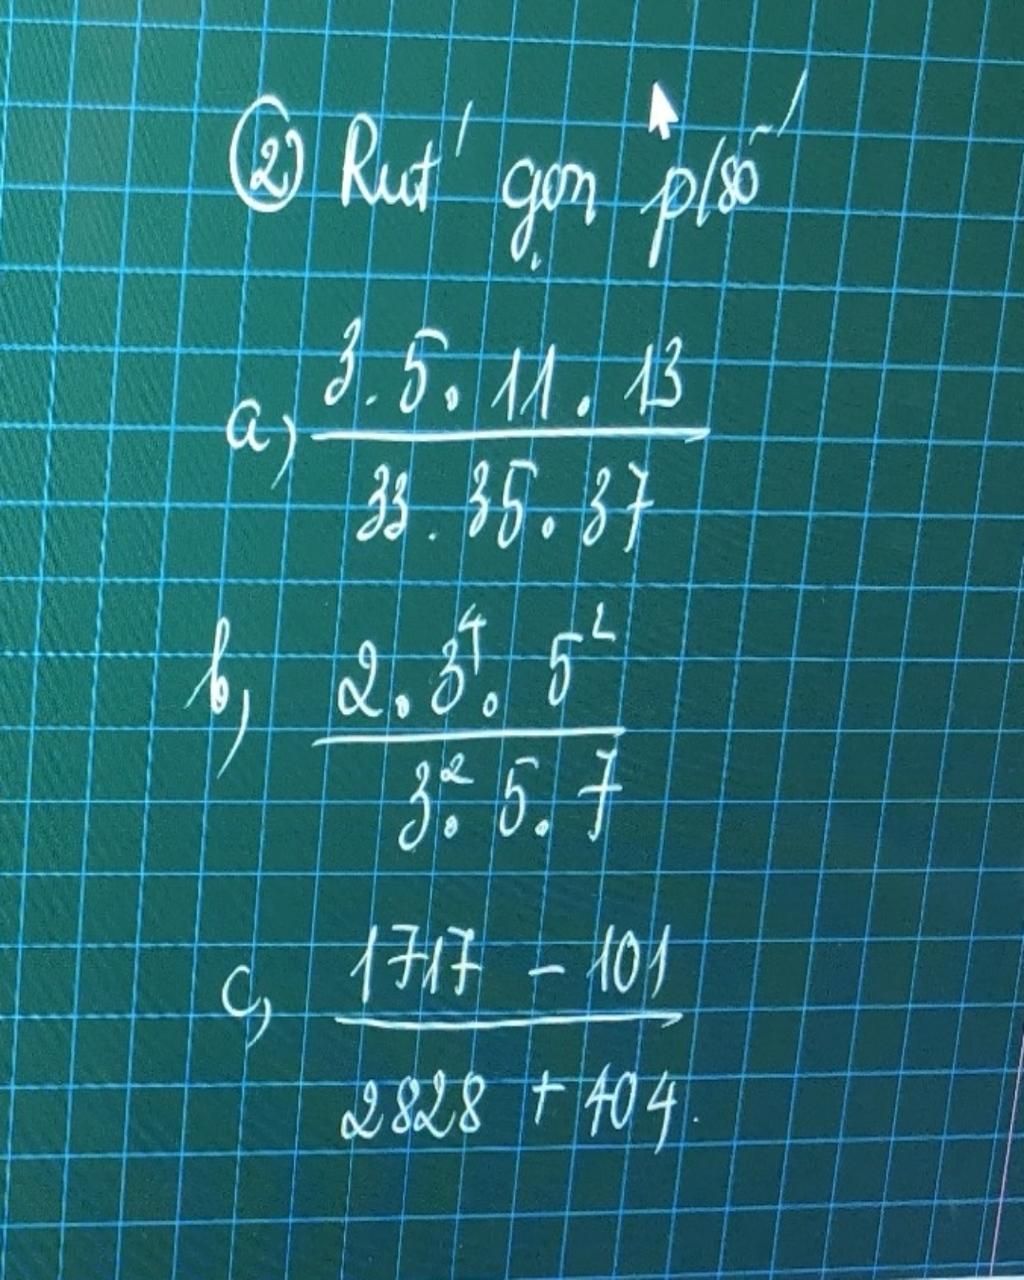 ② Rút gọn p/số
a) 3 . 5 . 11 . 13
33 . 35 . 37
b, 2 . 3⁴ . 5²
3² . 5 . 7
c, 1717 - 101
2828 + 404.